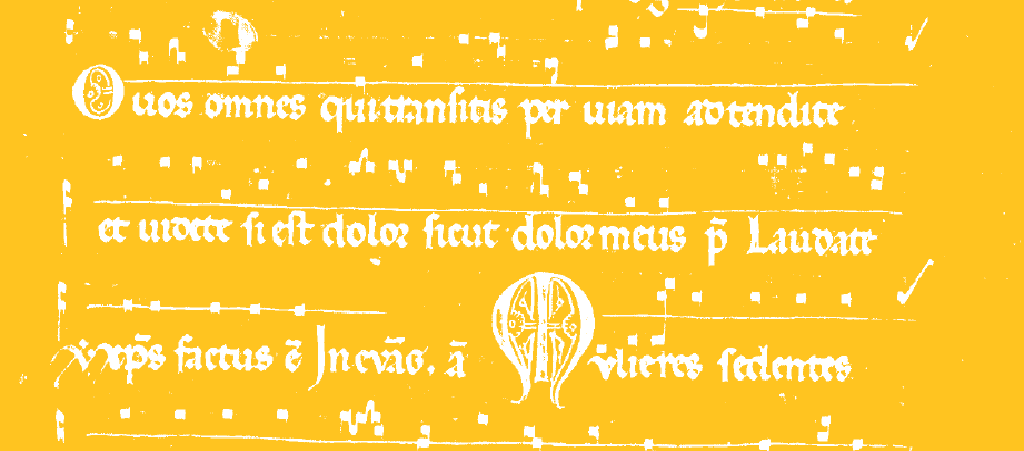 O uos omnes qui transitis per uiam adtendite
et uidete si est dolor sicut dolor meus p̄ Laudate
v xp̄s factus ē In evāg. ā Mulieres sedentes